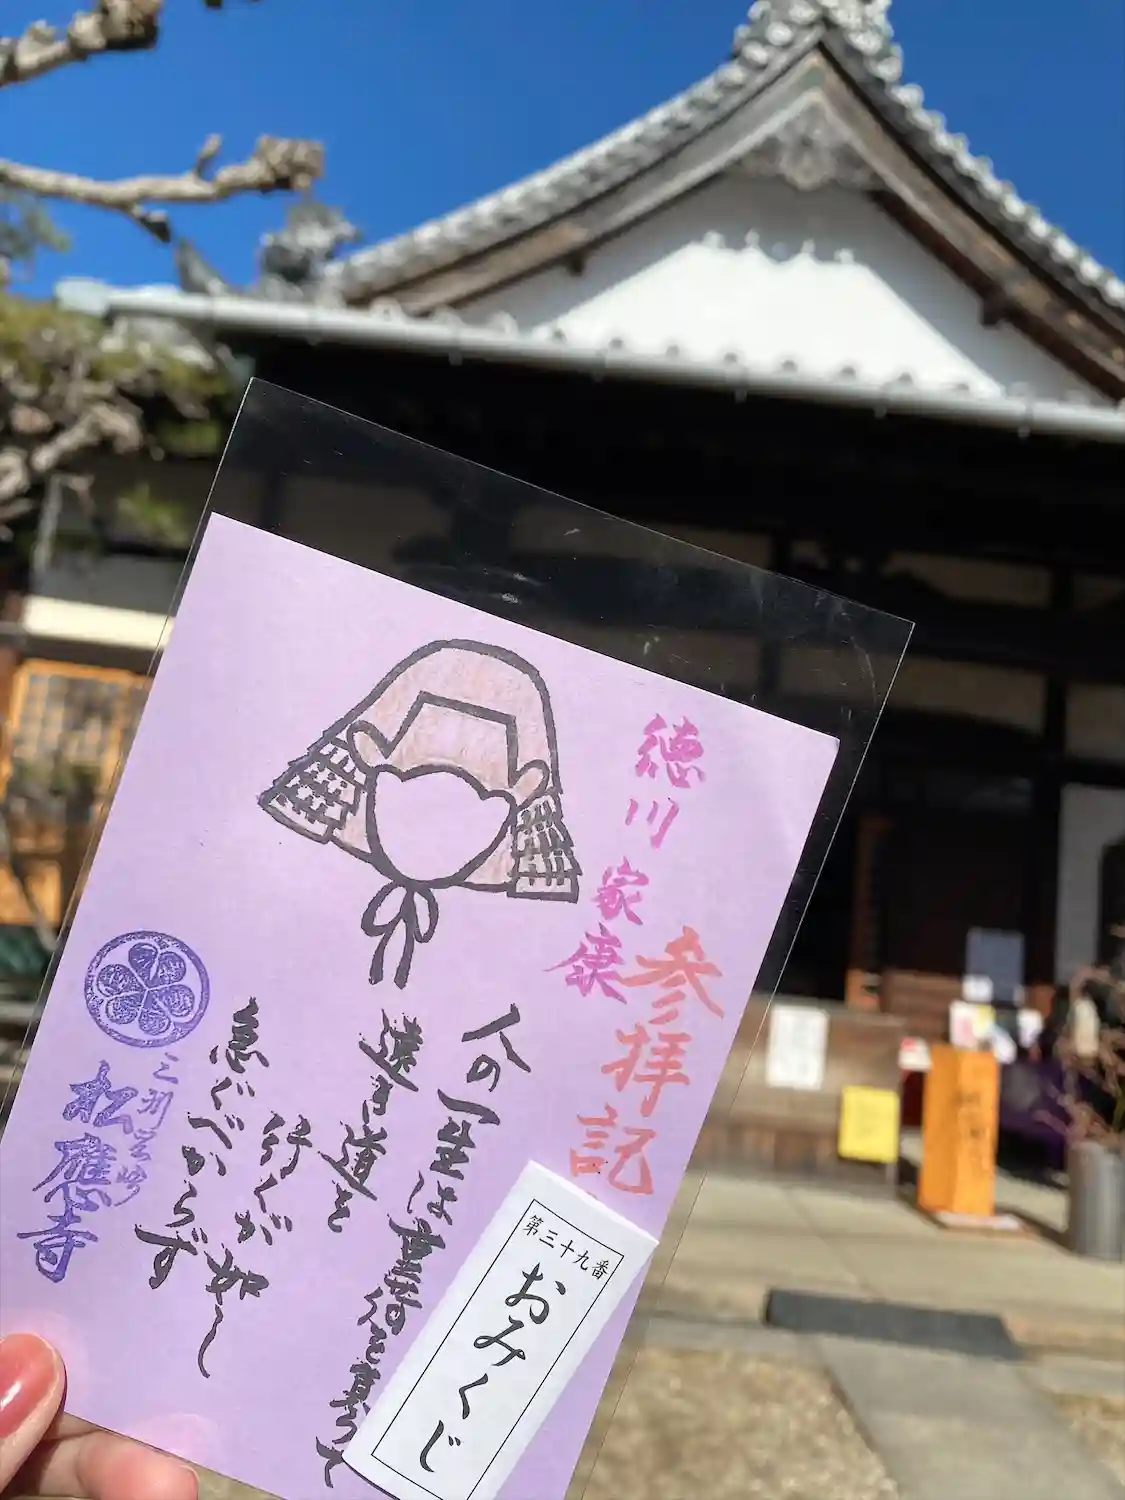 徳川家康
参拝記
人の一生は重荷を負って
遠き道を
行くが如し
急ぐべからず
三州岡崎
松應寺
第三十九番
おみくじ